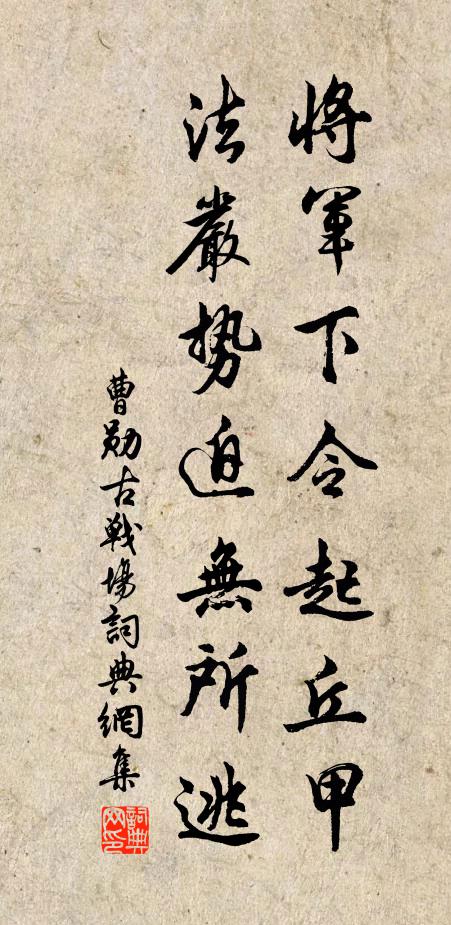 將軍下令起丘甲
法嚴勢迫無所逃
曹勛古戰場詞典網集
詞典网印